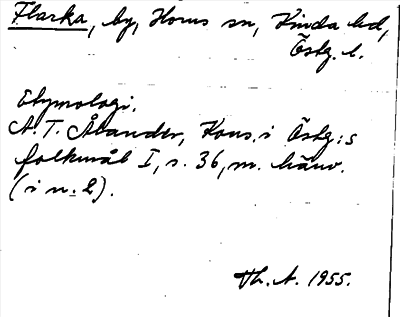 Flarka, by, Horns sn, Kinda hd,
Östg. l.
Etymologi.
A. T. Ålander, Kons. i Östg:s
folkmål I, s. 36, m. hänv.
(i n. 2).
Th. A. 1955.